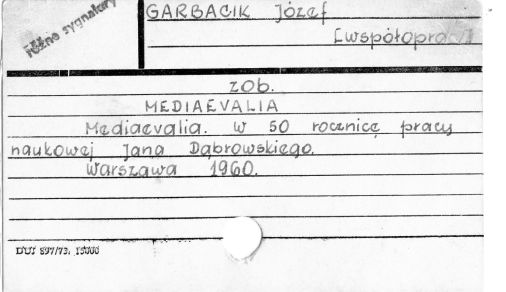 Różne sygnatury
GARBACIK Józef
[współoprac.]
zob.
MEDIAEVALIA
Mediaevalia. W 50 rocznicę pracy
naukowej Jana Dąbrowskiego.
Warszawa 1960.